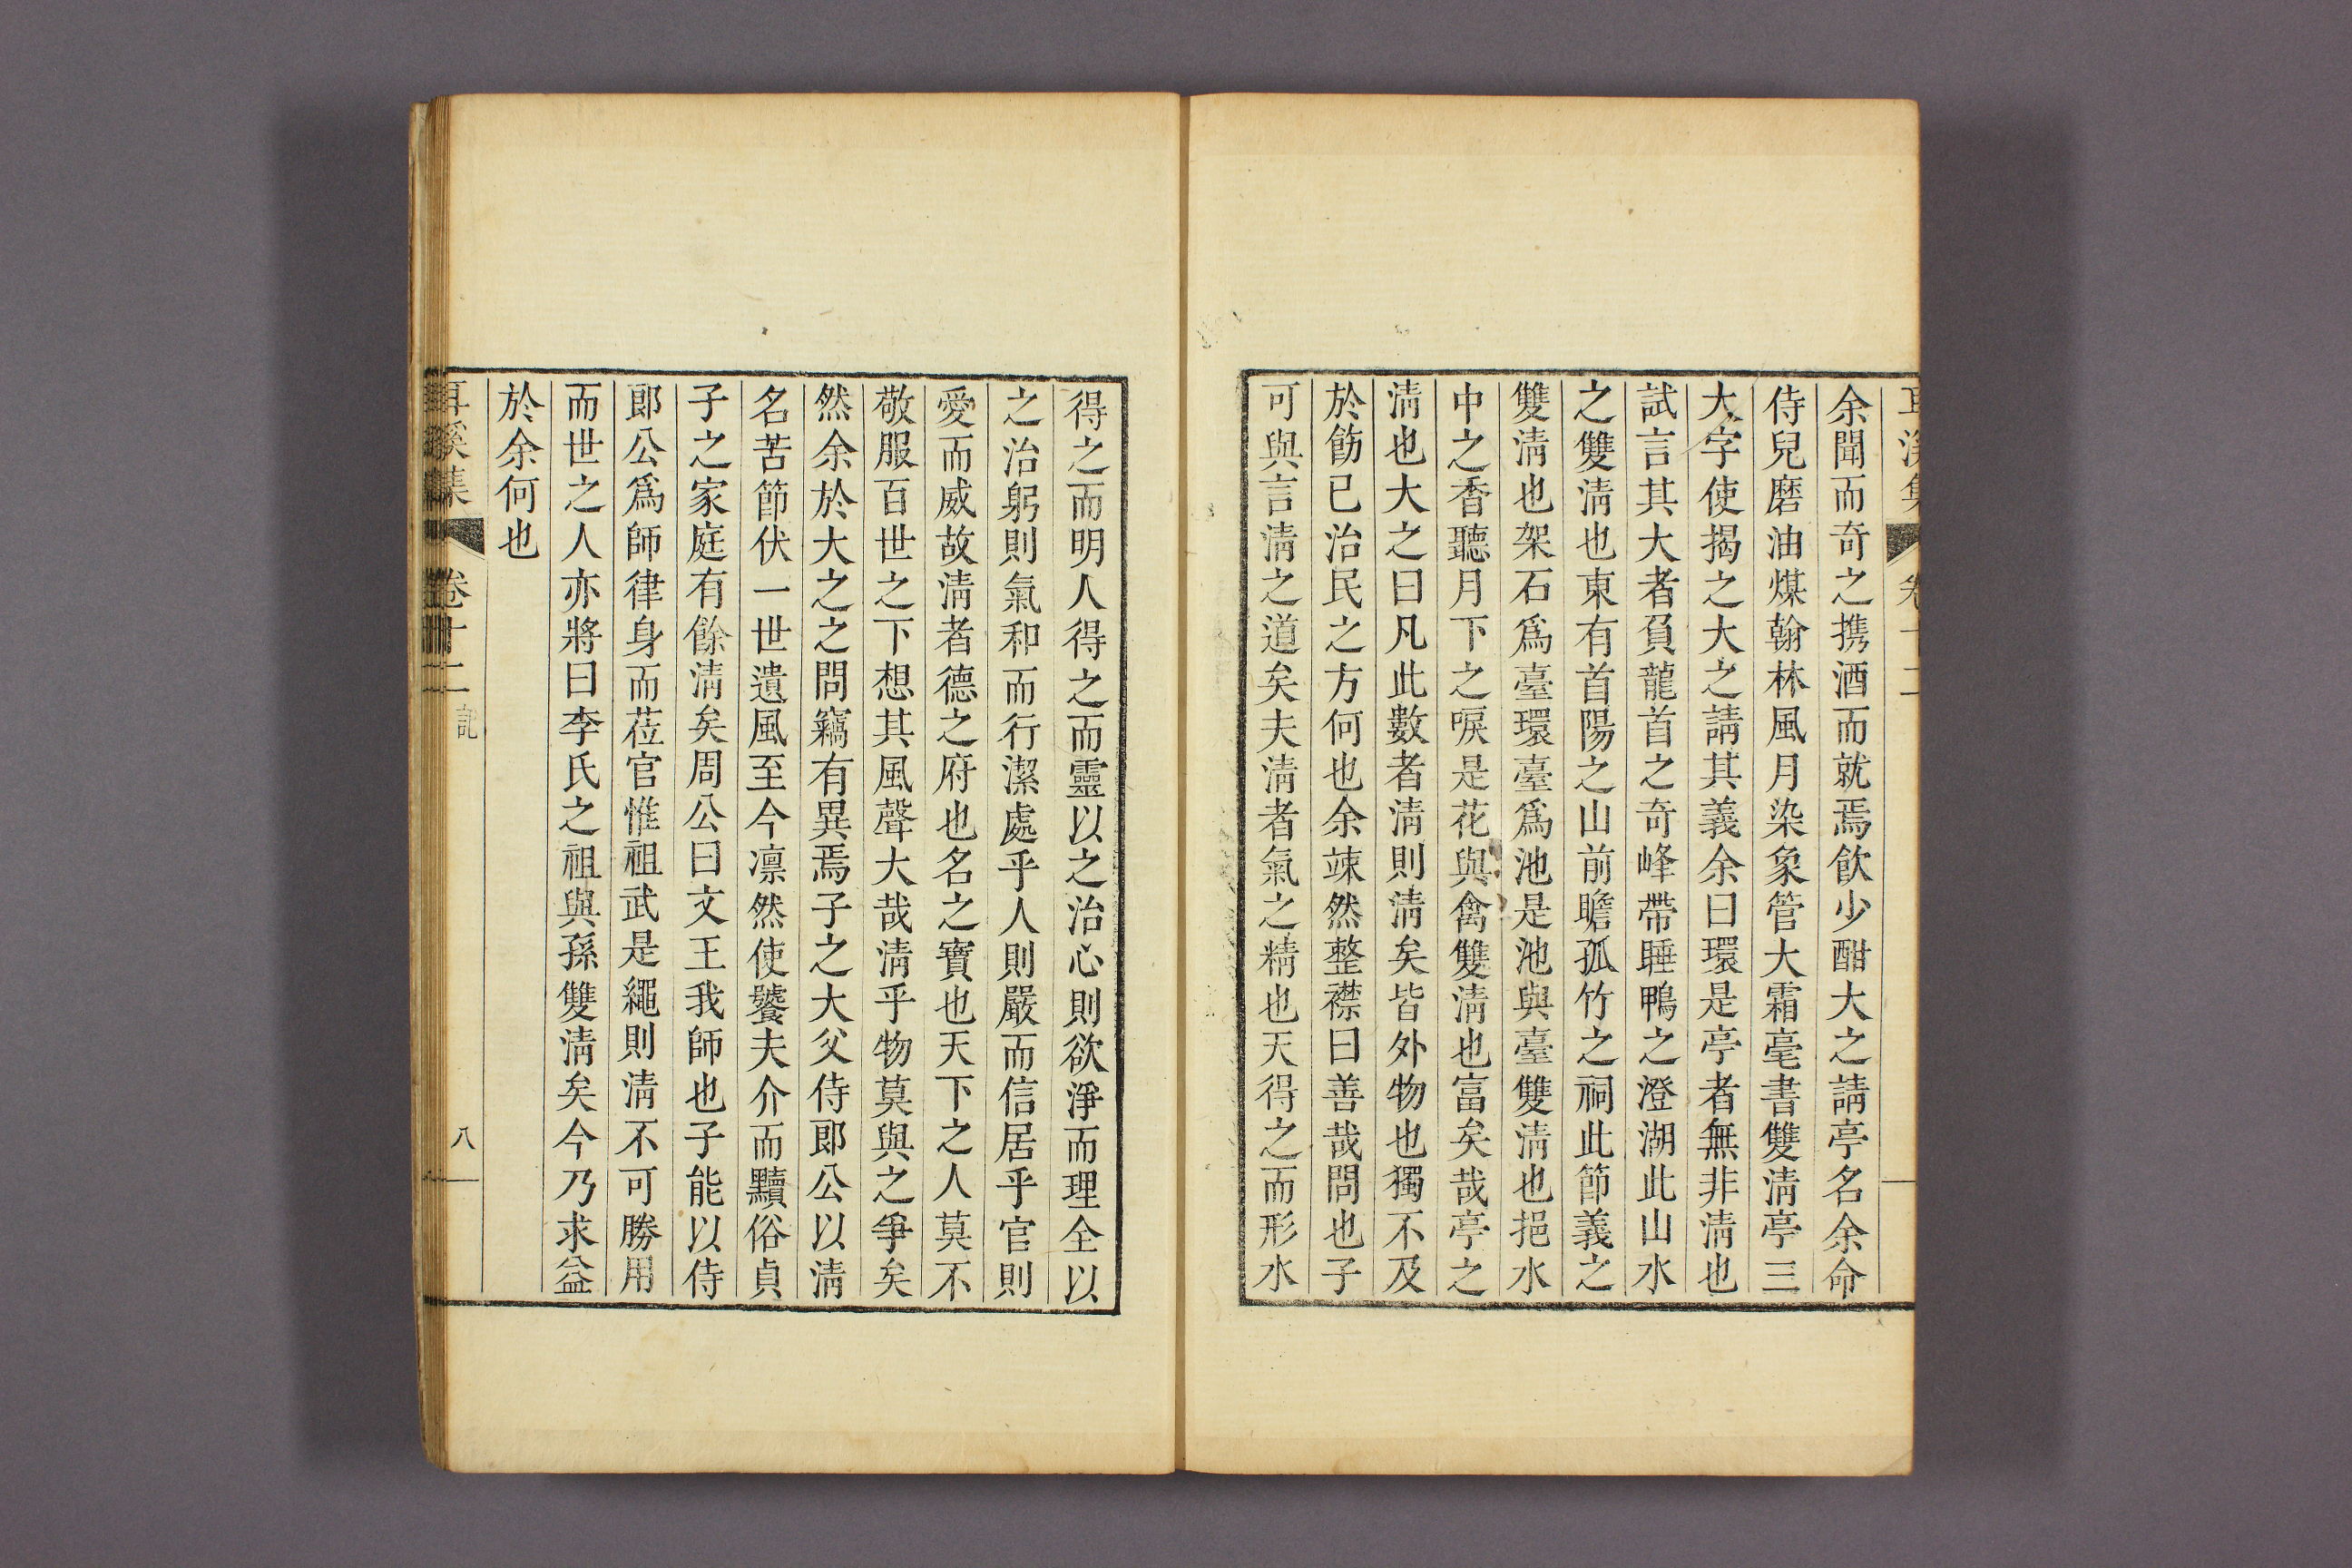 耳溪集 卷十二
余聞而奇之携酒而就焉飮少酣大之請亭名余命
侍兒磨油煤翰林風月染象管大霜毫書雙淸亭三
大字使揭之大之請其義余曰環是亭者無非淸也
試言其大者負龍首之奇峰帶睡鴨之澄湖此山水
之雙淸也東有首陽之山前瞻孤竹之祠此節義之
雙淸也架石爲臺環臺爲池是池與臺雙淸也挹水
中之香聽月下之唳是花與禽雙淸也富矣哉亭之
淸也大之曰凡此數者淸則淸矣皆外物也獨不及
於飭已治民之方何也余竦然整襟曰善哉問也子
可與言淸之道矣夫淸者氣之精也天得之而形水
得之而明人得之而靈以之治心則欲淨而理全以
之治躬則氣和而行潔處乎人則嚴而信居乎官則
愛而威故淸者德之府也名之寶也天下之人莫不
敬服百世之下想其風聲大哉淸乎物莫與之爭矣
然余於大之之問竊有異焉子之大父侍郎公以淸
名苦節伏一世遺風至今凛然使饕夫介而黷俗貞
子之家庭有餘淸矣周公曰文王我師也子能以侍
郎公爲師律身而莅官惟祖武是繩則淸不可勝用
而世之人亦將曰李氏之祖與孫雙淸矣今乃求益
於余何也
耳溪集 卷十二 記 八